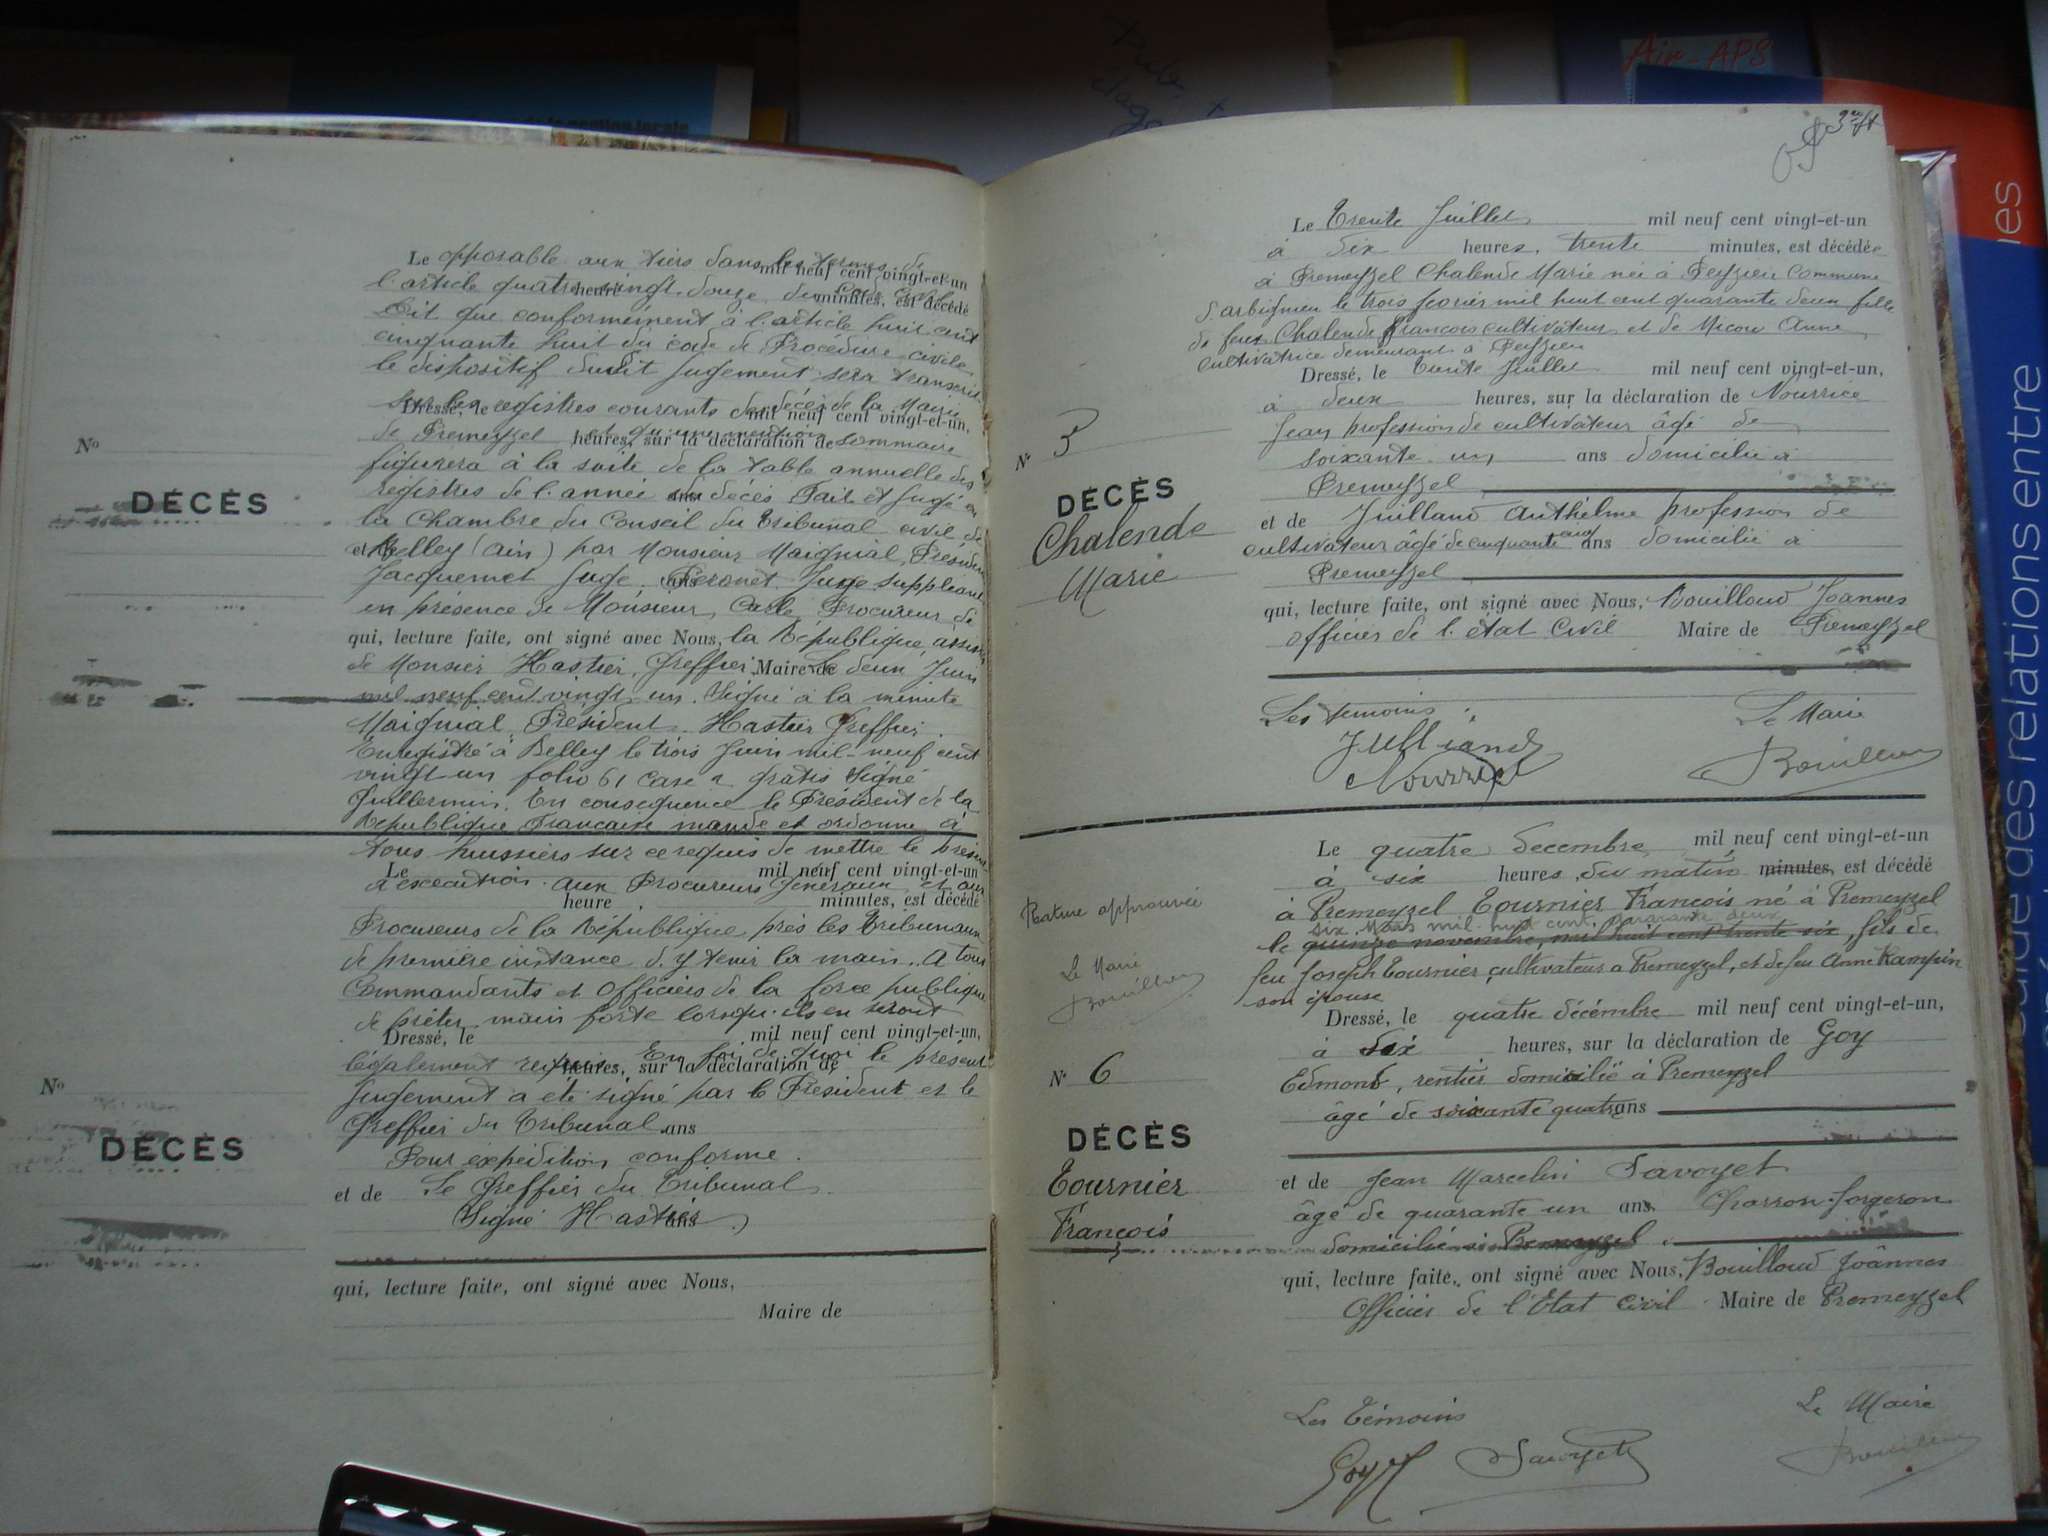 Air-APS
Le opposable aux tiers dans les termes de
mil neuf cent vingt-et-un
l'article quatre vingt douze du Code Civil
heure minutes, est décédé
Dit que conformément à l'article huit cent
cinquante huit du code de Procédure civile
le dispositif dudit jugement sera transcrit
sur les registres courants de décès de la Mairie
Dressé, le mil neuf cent vingt-et-un,
de Premeyzel et qu'une mention sommaire
heures, sur la déclaration de
figurera à la suite de la table annuelle des
registres de l'année du décès Fait et Jugé en
ans
la Chambre du Conseil du Tribunal civil de
et de Belley (Ain) par Monsieur Maignial, Président
Jacquemet Juge, Peronet Juge suppléant
ans
en présence de Monsieur Carle Procureur de
qui, lecture faite, ont signé avec Nous, la République, assisté
de Monsier Hastier, Greffier, Le deux Juin
Maire de
mil neuf cent vingt un. Signé à la minute
Maignial, Président. Hastier Greffier.
Enregistré à Belley le trois Juin mil-neuf cent
vingt un folio 61 Case gratis Signé
Guillermin. En consequence le Président de la
République Francaise mande et ordonne à
tous huissiers sur ce requis de mettre le présent
Le mil neuf cent vingt-et-un
à execution. aux Procureurs Généraux et aux
heure minutes, est décédé
Procureurs de la République près les Tribunaux
de première instance d'y tenir la main. A tous
Commandants et Officiers de la force publique
de prêter main forte lorsqu'ils en seront
Dressé, le mil neuf cent vingt-et-un,
légalement requis En foi de quoi le présent
heures, sur la déclaration de
Jugement a été signé par le Président et le
Greffier du Tribunal.
ans
Pour expédition conforme.
et de Le Greffier du Tribunal
Signé Hastier
ans
qui, lecture faite, ont signé avec Nous,
Maire de
No
DÉCÈS
No
DÉCÈS
Le Trente Juillet mil neuf cent vingt-et-un
à dix heures, trente minutes, est décédée
à Premeyzel Chalende Marie née à Peyzieu Commune
d'arbignieu le trois fevrier mil huit cent quarante deux fille
de feux Chalende Francois cultivateur et de Micou Anne
cultivatrice demeurant à Peyzieu
Dressé, le trente Juillet mil neuf cent vingt-et-un,
à deux heures, sur la déclaration de Nourrice
Jean profession de cultivateur âgé de
soixante un ans domicilié à
Premeyzel
et de Juilland Anthelme profession de
cultivateur âgé de cinquante cinq ans domicilié à
Premeyzel
qui, lecture faite, ont signé avec Nous, Bouilloud Joannes
officier de l'état Civil Maire de Premeyzel
N° 5
DÉCÈS
Chalende
Marie
Les temoins: Le Marie
Julliand
Nourrice Bouilloud
Le quatre decembre mil neuf cent vingt-et-un
à six heures du matin minutes, est décédé
à Premeyzel Tournier François né à Premeyzel
six Mars mil huit cent quarante deux
le quinze novembre, mil huit cent trente six, fils de
feu Joseph Tournier, cultivateur à Premeyzel, et de feu Anne Rampin
son épouse
Dressé, le quatre décémbre mil neuf cent vingt-et-un,
à dix heures, sur la déclaration de Goy
Edmond, rentier domicilié à Premeyzel
âgé de soixante quatre ans
et de Jean Marcelin Savoyet
âgé de quarante un ans Charron-forgeron
domicilié à Premeyzel.
qui, lecture faite, ont signé avec Nous, Bouilloud Joânnes
Officier de l'Etat Civil Maire de Premeyzel
Rature approuvée
Le Marie
Bouilloud
N° 6
DÉCÈS
Tournier
François
Les Témoins Le Maire
Goy Savoyet Bouilloud
Guide des relations entre